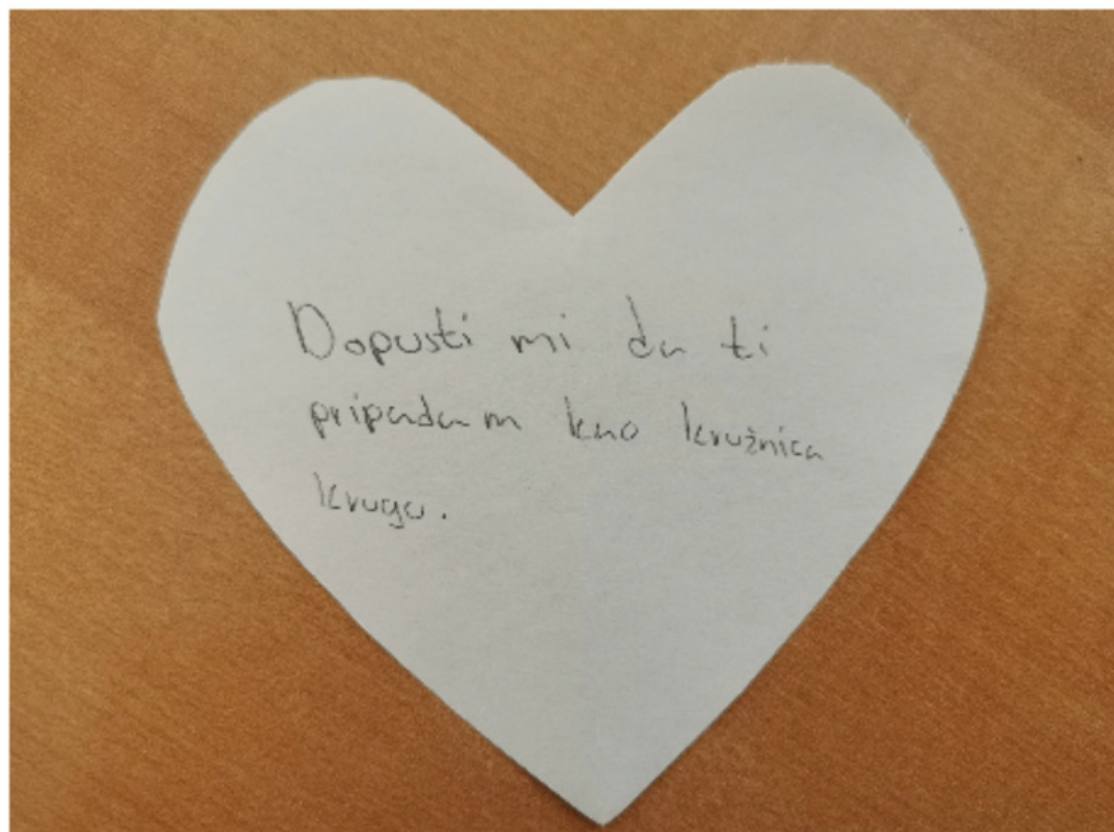 Dopusti mi da ti
pripadam kao kružnica
krugu.